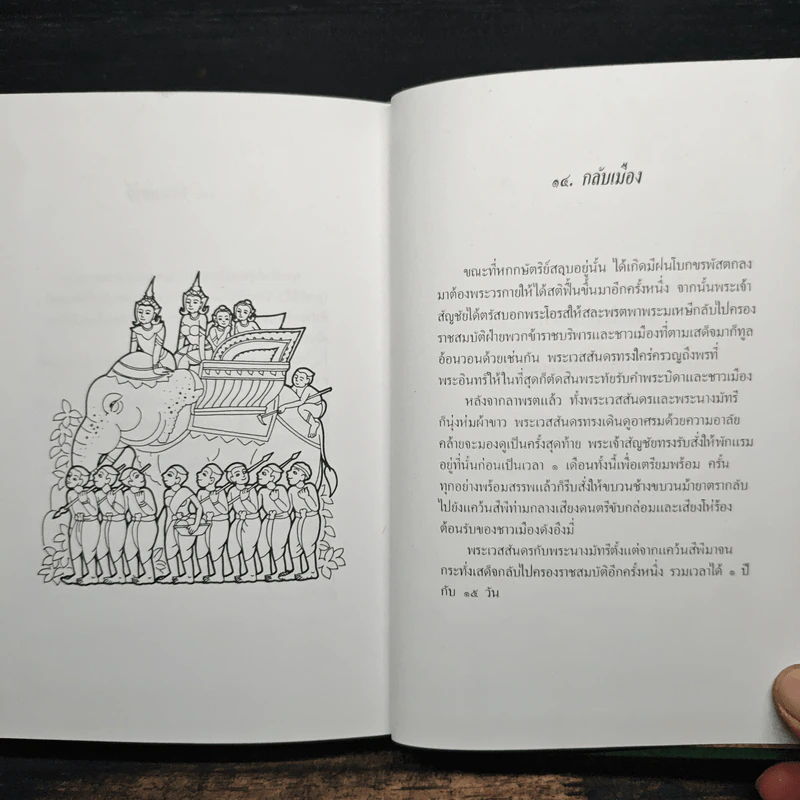 ๑๔. กลับเมือง
ขณะที่หกกษัตริย์สลบอยู่นั้น ได้เกิดมีฝนโบกขรพัสตกลง
มาต้องพระวรกายให้ได้สติฟื้นขึ้นมาอีกครั้งหนึ่ง จากนั้นพระเจ้า
สัญชัยได้ตรัสบอกพระโอรสให้สละพรตพาพระมเหษีกลับไปครอง
ราชสมบัติฝ่ายพวกข้าราชบริพารและชาวเมืองที่ตามเสด็จมาก็ทูล
อ้อนวอนด้วยเช่นกัน พระเวสสันดรทรงใคร่ครวญถึงพรที่
พระอินทร์ให้ในที่สุดก็ตัดสินพระทัยรับคำพระบิดาและชาวเมือง
หลังจากลาพรตแล้ว ทั้งพระเวสสันดรและพระนางมัทรี
ก็นุ่งห่มผ้าขาว พระเวสสันดรทรงเดินดูอาศรมด้วยความอาลัย
คล้ายจะมองดูเป็นครั้งสุดท้าย พระเจ้าสัญชัยทรงรับสั่งให้พักแรม
อยู่ที่นั้นก่อนเป็นเวลา ๑ เดือนทั้งนี้เพื่อเตรียมพร้อม ครั้น
ทุกอย่างพร้อมสรรพแล้วก็รีบสั่งให้ขบวนช้างขบวนม้ายาตรากลับ
ไปยังแคว้นสีพีท่ามกลางเสียงดนตรีขับกล่อมและเสียงโห่ร้อง
ต้อนรับของชาวเมืองดังอึงมี่
พระเวสสันดรกับพระนางมัทรีตั้งแต่จากแคว้นสีพีมาจน
กระทั่งเสด็จกลับไปครองราชสมบัติอีกครั้งหนึ่ง รวมเวลาได้ ๑ ปี
กับ ๑๕ วัน